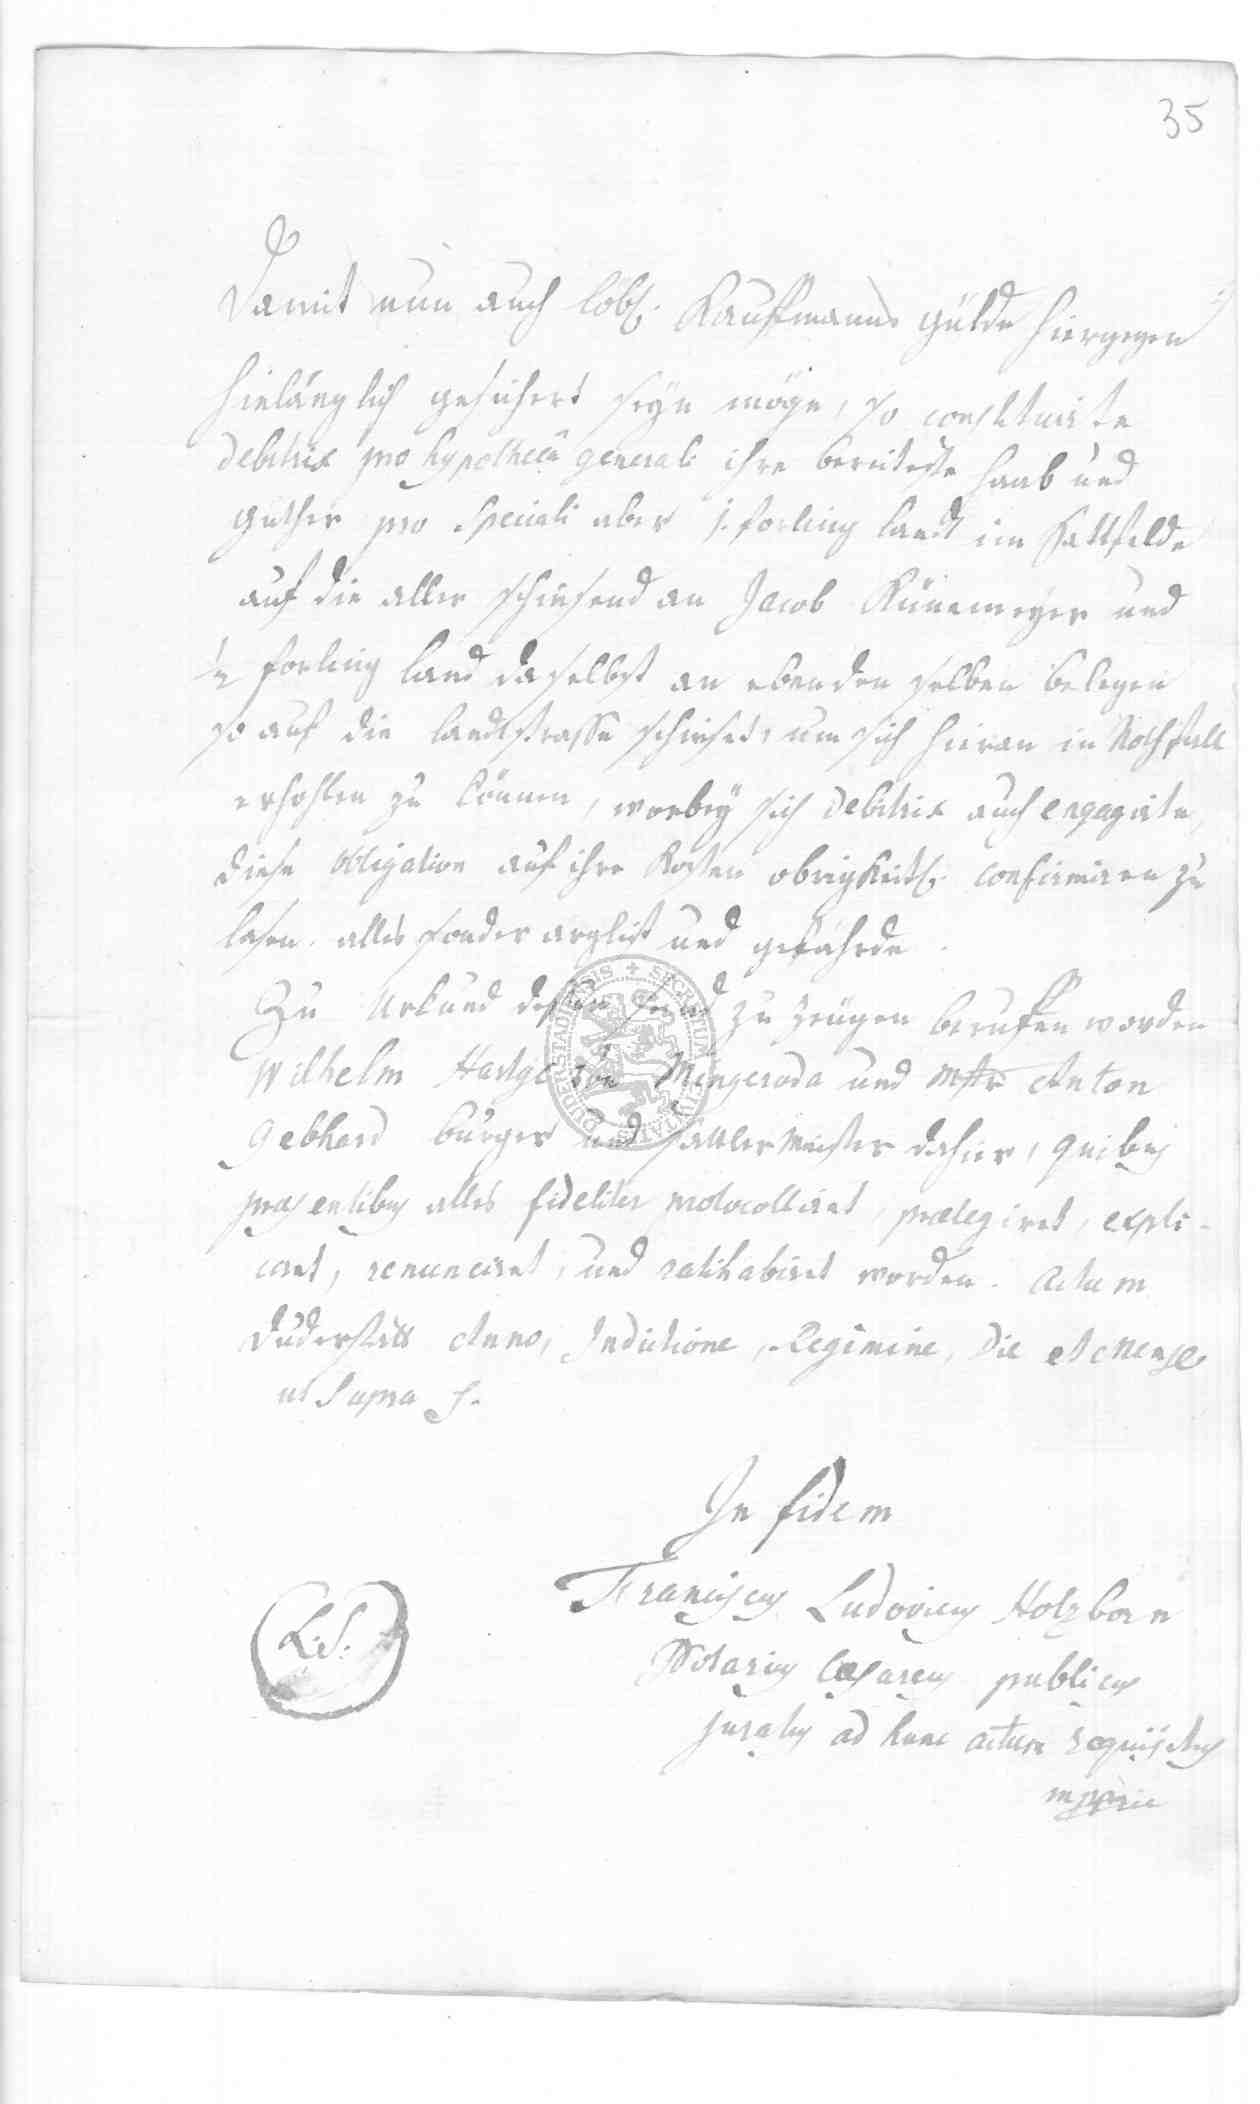 35
Damit nun auch löbl. Kauffmanns gülde hiergegen
hinlänglich gesichert seyn möge, so constituirte
Debitrix pro hypotheca generali ihre bereiteste haab und
güther pro speciali aber 1. forling landt im
auf die aller schiesend an Jacob Künemeyer und
1/2 forling land daselbst an ebenden selben belegen
so auf die landtstrasse schieset, um sich hieran in Nothfall
erhohlen zu können, worbey sich Debitrix auch engagirte,
diese obligation auf ihre Kosten obrigkeitl. confirmiren zu
lasen. alles sonder arglist und gefährde.
Zu Urkund dessen seynd zu zeügen beruffen worden
Wilhelm Hartge von Mingeroda und Mstr Anton
Gebhard bürger und sattler Meister dahier, quibus
præsentibus alles fideliter protocollirt, prælegirt, expli-
cirt, renuncirt, und ratihabirt worden. Actum
Duderstadt Anno, Indictione, Regimine, Die et Mense
ut Supra
DUDERSTADIENSIS + SECRETUM CIVITATIS
In fidem
Franciscus Ludovicus Holzborn
L.S.
Notarius Cæsareus publicus
juratus ad hunc actum requisitus
mppria